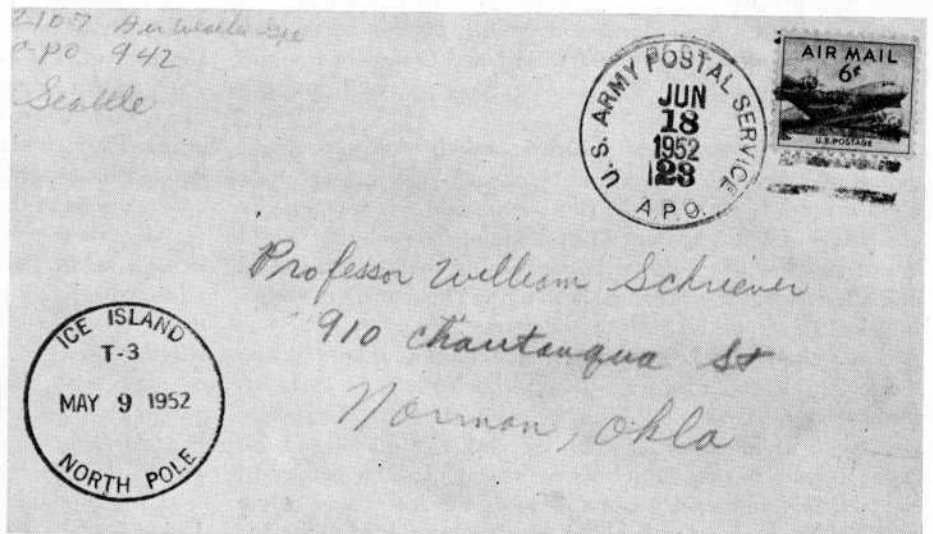 2107 Air Weather
APO 942
Seattle
U. S. ARMY POSTAL SERVICE
JUN
18
1952
A P O.
AIR MAIL
6¢
U.S. POSTAGE
Professor William Schriever
910 Chautauqua St
Norman, Okla
ICE ISLAND
T-3
MAY 9 1952
NORTH POLE